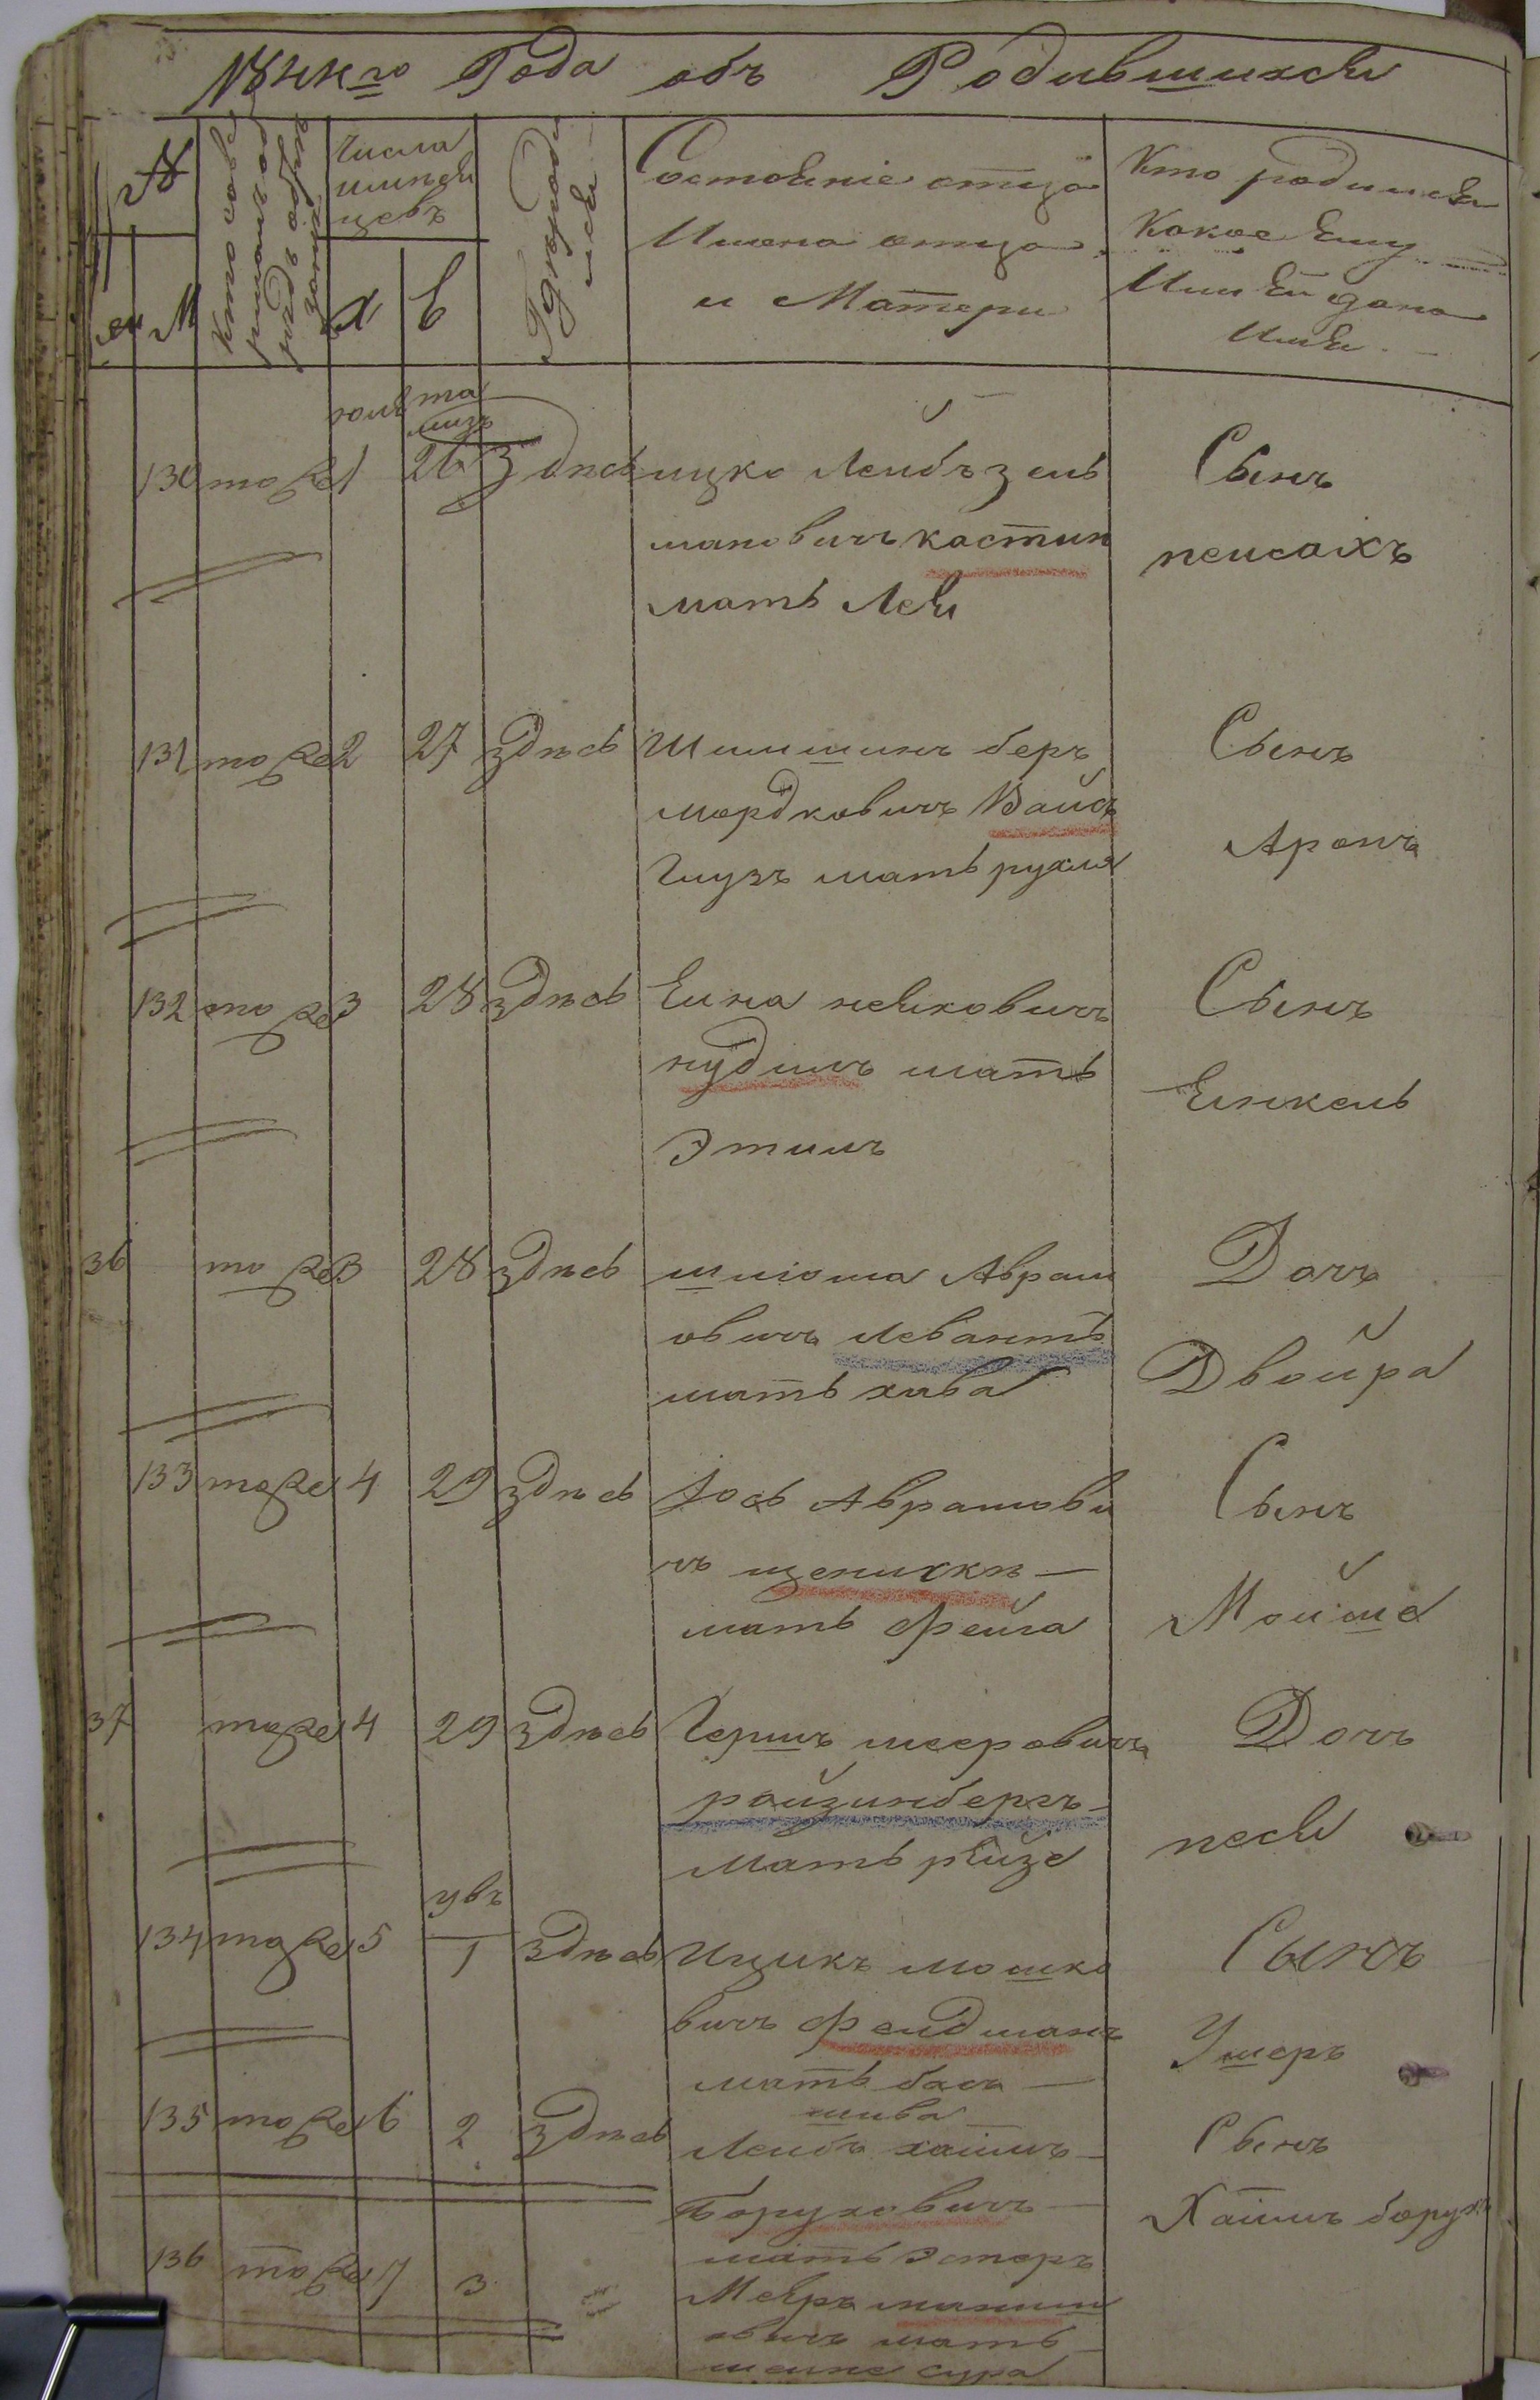 Года объ Родившихся
№
Кто совершалъ обрядъ обрезанія
Числа и месецевъ
Где родился
Состояніе отца
Имена отца
и Матери
Кто родился
Какое Ему
Или Ей дано
Имя
М
Х
Е
юля
130 тоже 1 26 здѣсь ицко Лейбъ зель
мановичъ кастин
мать Лея
Сынъ
пейсахъ
131 тоже 2 27 здѣсь беръ
мордковичъ Вайс
мать рухля
Сынъ
Аронъ
132 тоже 3 28 здѣсь
мать
Этиль
Сынъ
Енкель
36 тоже 3 28 здѣсь шлiома Аврам
овичъ левантъ
мать хава
Дочь
Двойра
133 тоже 4 29 здѣсь Іось Аврамови
чъ
мать Фейга
Сынъ
Мойше
37 тоже 4 29 здѣсь Гершъ мееровичъ
райзинбергъ
Мать рейзе
Дочъ
песя
134 тоже 5 1 здѣсь Ицикъ мошко
вичъ Фелдманъ
мать бася
шива
Сынъ
Ушеръ
135 тоже 6 2 здѣсь Лейбъ хаимъ
Боруховичъ
мать Эстеръ
Сынъ
Хаимъ борухъ
136 тоже 7 3 Меяръ
овичъ мать
сура